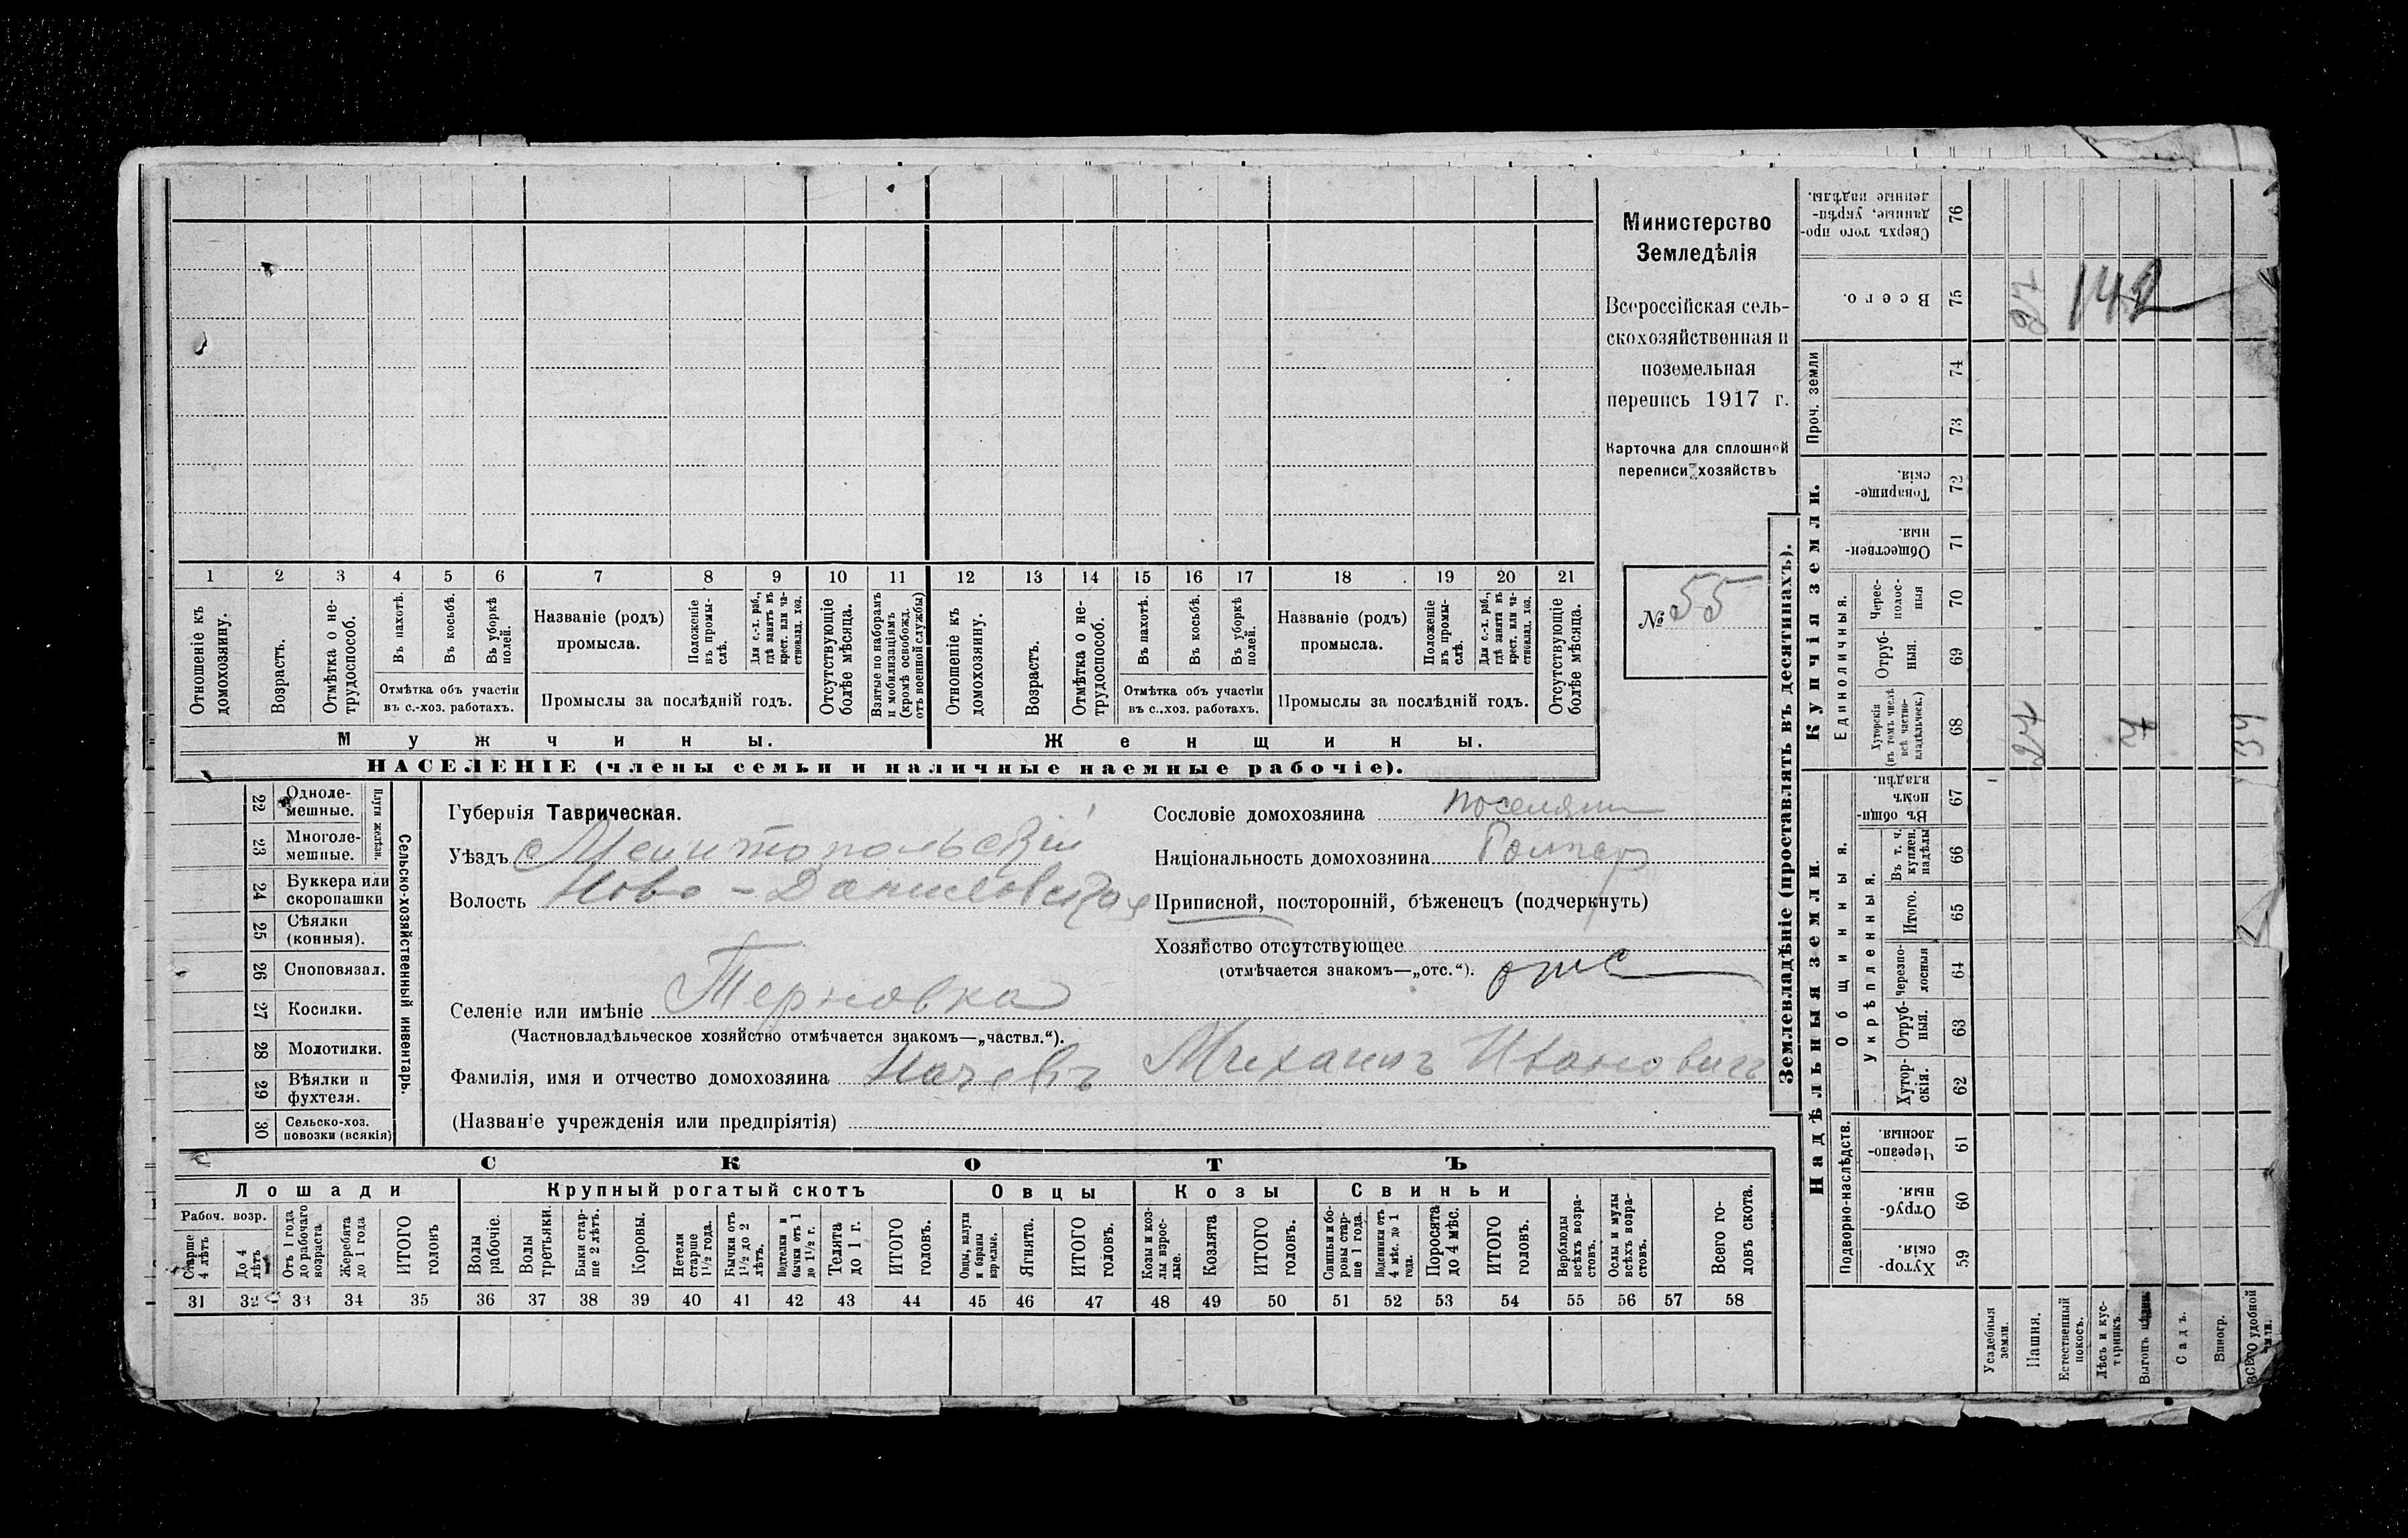 Министерство
Земледѣлія
Всероссійская сель-
скохозяйственная и
поземельная
перепись 1917 г.
Карточка для сплошной
переписи хозяйствъ
№ 55
1 2 3 4 5 6 7 8 9 10 11 12 13 14 15 16 17 18 19 20 21
Отношеніе къ домохозяину.
Возрастъ.
Отмѣтка о не-трудоспособ.
Въ пахотѣ.
Въ косьбѣ.
Въ уборкѣ полей.
Отмѣтка объ участіи
въ с.-хоз. работахъ.
Названіе (родъ)
промысла.
Положеніе въ промы-слѣ.
Для с.-х. раб., гдѣ занятъ въ крест. или ча-стновлад. хоз.
Промыслы за послѣдній годъ.
Отсутствующіе болѣе мѣсяца.
Взятые по наборамъ и мобилизаціямъ (кромѣ освобожд. отъ военной службы)
Отношеніе къ домохозяину.
Возрастъ.
Отмѣтка о не-трудоспособ.
Въ пахотѣ.
Въ косьбѣ.
Въ уборкѣ полей.
Отмѣтка объ участіи
въ с..хоз. работахъ.
Названіе (родъ)
промысла.
Положеніе въ промы-слѣ.
Для с.-х. раб., гдѣ занята въ крест. или ча-стновлад. хоз.
Промыслы за послѣдній годъ.
Отсутствующіе болѣе мѣсяца.
Мужчины.
Женщины.
НАСЕЛЕНІЕ (члены семьи и наличные наемные рабочіе).
22 Одноле-мешные.
23 Многоле-мешные.
Плуги желѣзн.
24 Буккера или скоропашки
25 Сѣялки (конныя).
26 Сноповязал.
27 Косилки.
28 Молотилки.
29 Вѣялки и фухтеля.
30 Сельско-хоз. повозки (всякія)
Сельско-хозяйственный инвентарь.
Губернія Таврическая.
Уѣздъ Мелитопольскій
Волость Ново-Даниловская
Селеніе или имѣніе Терновка
(Частновладѣльческое хозяйство отмѣчается знакомъ—„частвл.“).
Фамилія, имя и отчество домохозяина Начевъ Михаилъ Ивановичъ
(Названіе учрежденія или предпріятія)
Сословіе домохозяина поселянин
Національность домохозяина Болгар
Приписной, посторонній, бѣженецъ (подчеркнуть)
Хозяйство отсутствующее
(отмѣчается знакомъ—„отс.“). отс
СКОТЪ
Лошади
Крупный рогатый скотъ
Овцы
Козы
Свиньи
Рабоч. возр.
Старше 4 лѣтъ
До 4 лѣтъ
Отъ 1 года до рабочаго возраста
Жеребята до 1 года
ИТОГО головъ
Волы рабочіе.
Волы третьяки.
Быки стар-ше 2 лѣтъ.
Коровы.
Нетели старше 1½ года.
Бычки отъ 1½ до 2 лѣтъ.
Подтелки и бычки отъ 1 до 1½ г.
Телята до 1 г.
ИТОГО головъ.
Овцы, валухи и бараны взрослые.
Ягнята.
ИТОГО головъ.
Козы и коз-лы взрос-лые.
Козлята
ИТОГО головъ.
Свиньи и бо-ровы стар-ше 1 года.
Подсвинки отъ 4 мѣс. до 1 года.
Поросята до 4 мѣс.
ИТОГО головъ.
Верблюды всѣхъ возра-стовъ.
Ослы и мулы всѣхъ возра-стовъ.
Всего го-ловъ скота.
31 32 33 34 35 36 37 38 39 40 41 42 43 44 45 46 47 48 49 50 51 52 53 54 55 56 57 58
Землевладѣніе (проставлять въ десятинахъ).
Надѣльныя земли.
Купчія земли.
Проч. земли
Подворно-наслѣдств.
Общинныя.
Укрѣпленныя.
Единоличныя.
Сверхъ того про-данные, укрѣп-ленные надѣлы. 76
Всего. 75
74
73
Товарище-скія. 72
Обществен-ныя. 71
Черес-полос-ныя 70
Отруб-ныя. 69
Хуторскія (въ томъ числѣ всѣ частно-владѣльческ.) 68
Въ общи-номъ владѣн. 67
Въ т. ч. куплен. надѣлы 66
Итого. 65
Черезпо-лосныя 64
Отруб-ныя. 63
Хутор-скія. 62
Черезпо-лосныя. 61
Отруб-ныя. 60
Хутор-скія. 59
Усадебныя земли.
Пашня.
Естественный покосъ.
Лѣсъ и кус-тарникъ.
Выгонъ
Садъ.
Виногр.
Всего удобной земли.
27
142
27
7
34